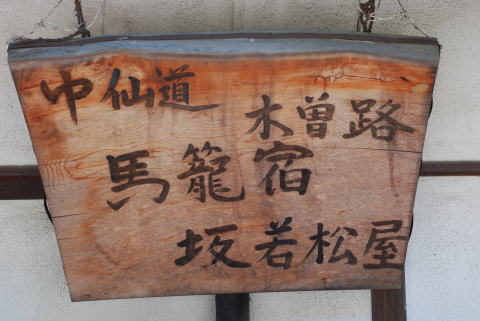 中仙道
木曽路
馬籠宿
坂若松屋